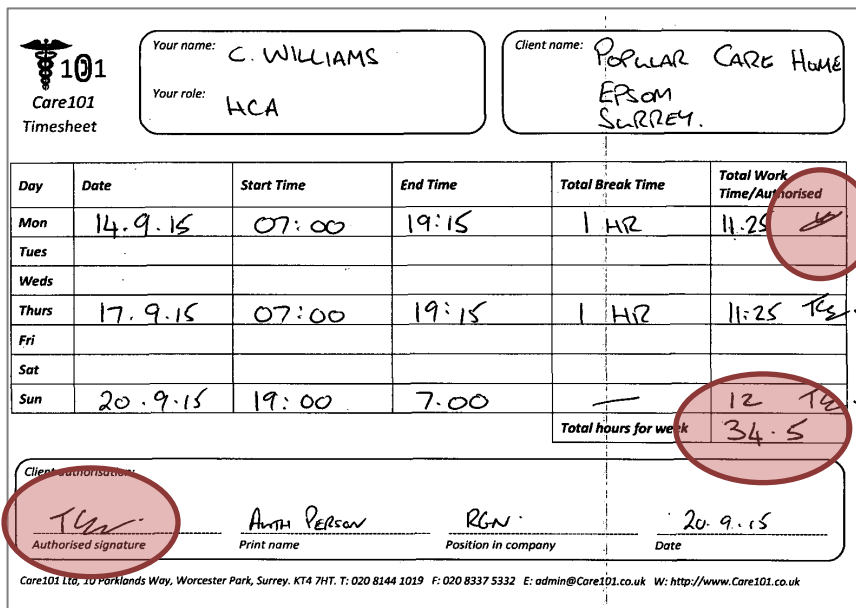 101
Care101
Timesheet
Your name: C. WILLIAMS
Your role: HCA
Client name: POPULAR CARE HOME
EPSOM
SURREY.
Day Date Start Time End Time Total Break Time Total Work Time/Authorised
Mon 14.9.15 07:00 19:15 1 HR 11.25
Tues
Weds
Thurs 17.9.15 07:00 19:15 1 HR 11.25
Fri
Sat
Sun 20.9.15 19:00 7.00 — 12
Total hours for week 34.5
Client authorisation:
AUTH PERSON RGN. 20.9.15
Authorised signature Print name Position in company Date
Care101 Ltd, 10 Parklands Way, Worcester Park, Surrey. KT4 7HT. T: 020 8144 1019 F: 020 8337 5332 E: admin@Care101.co.uk W: http://www.Care101.co.uk